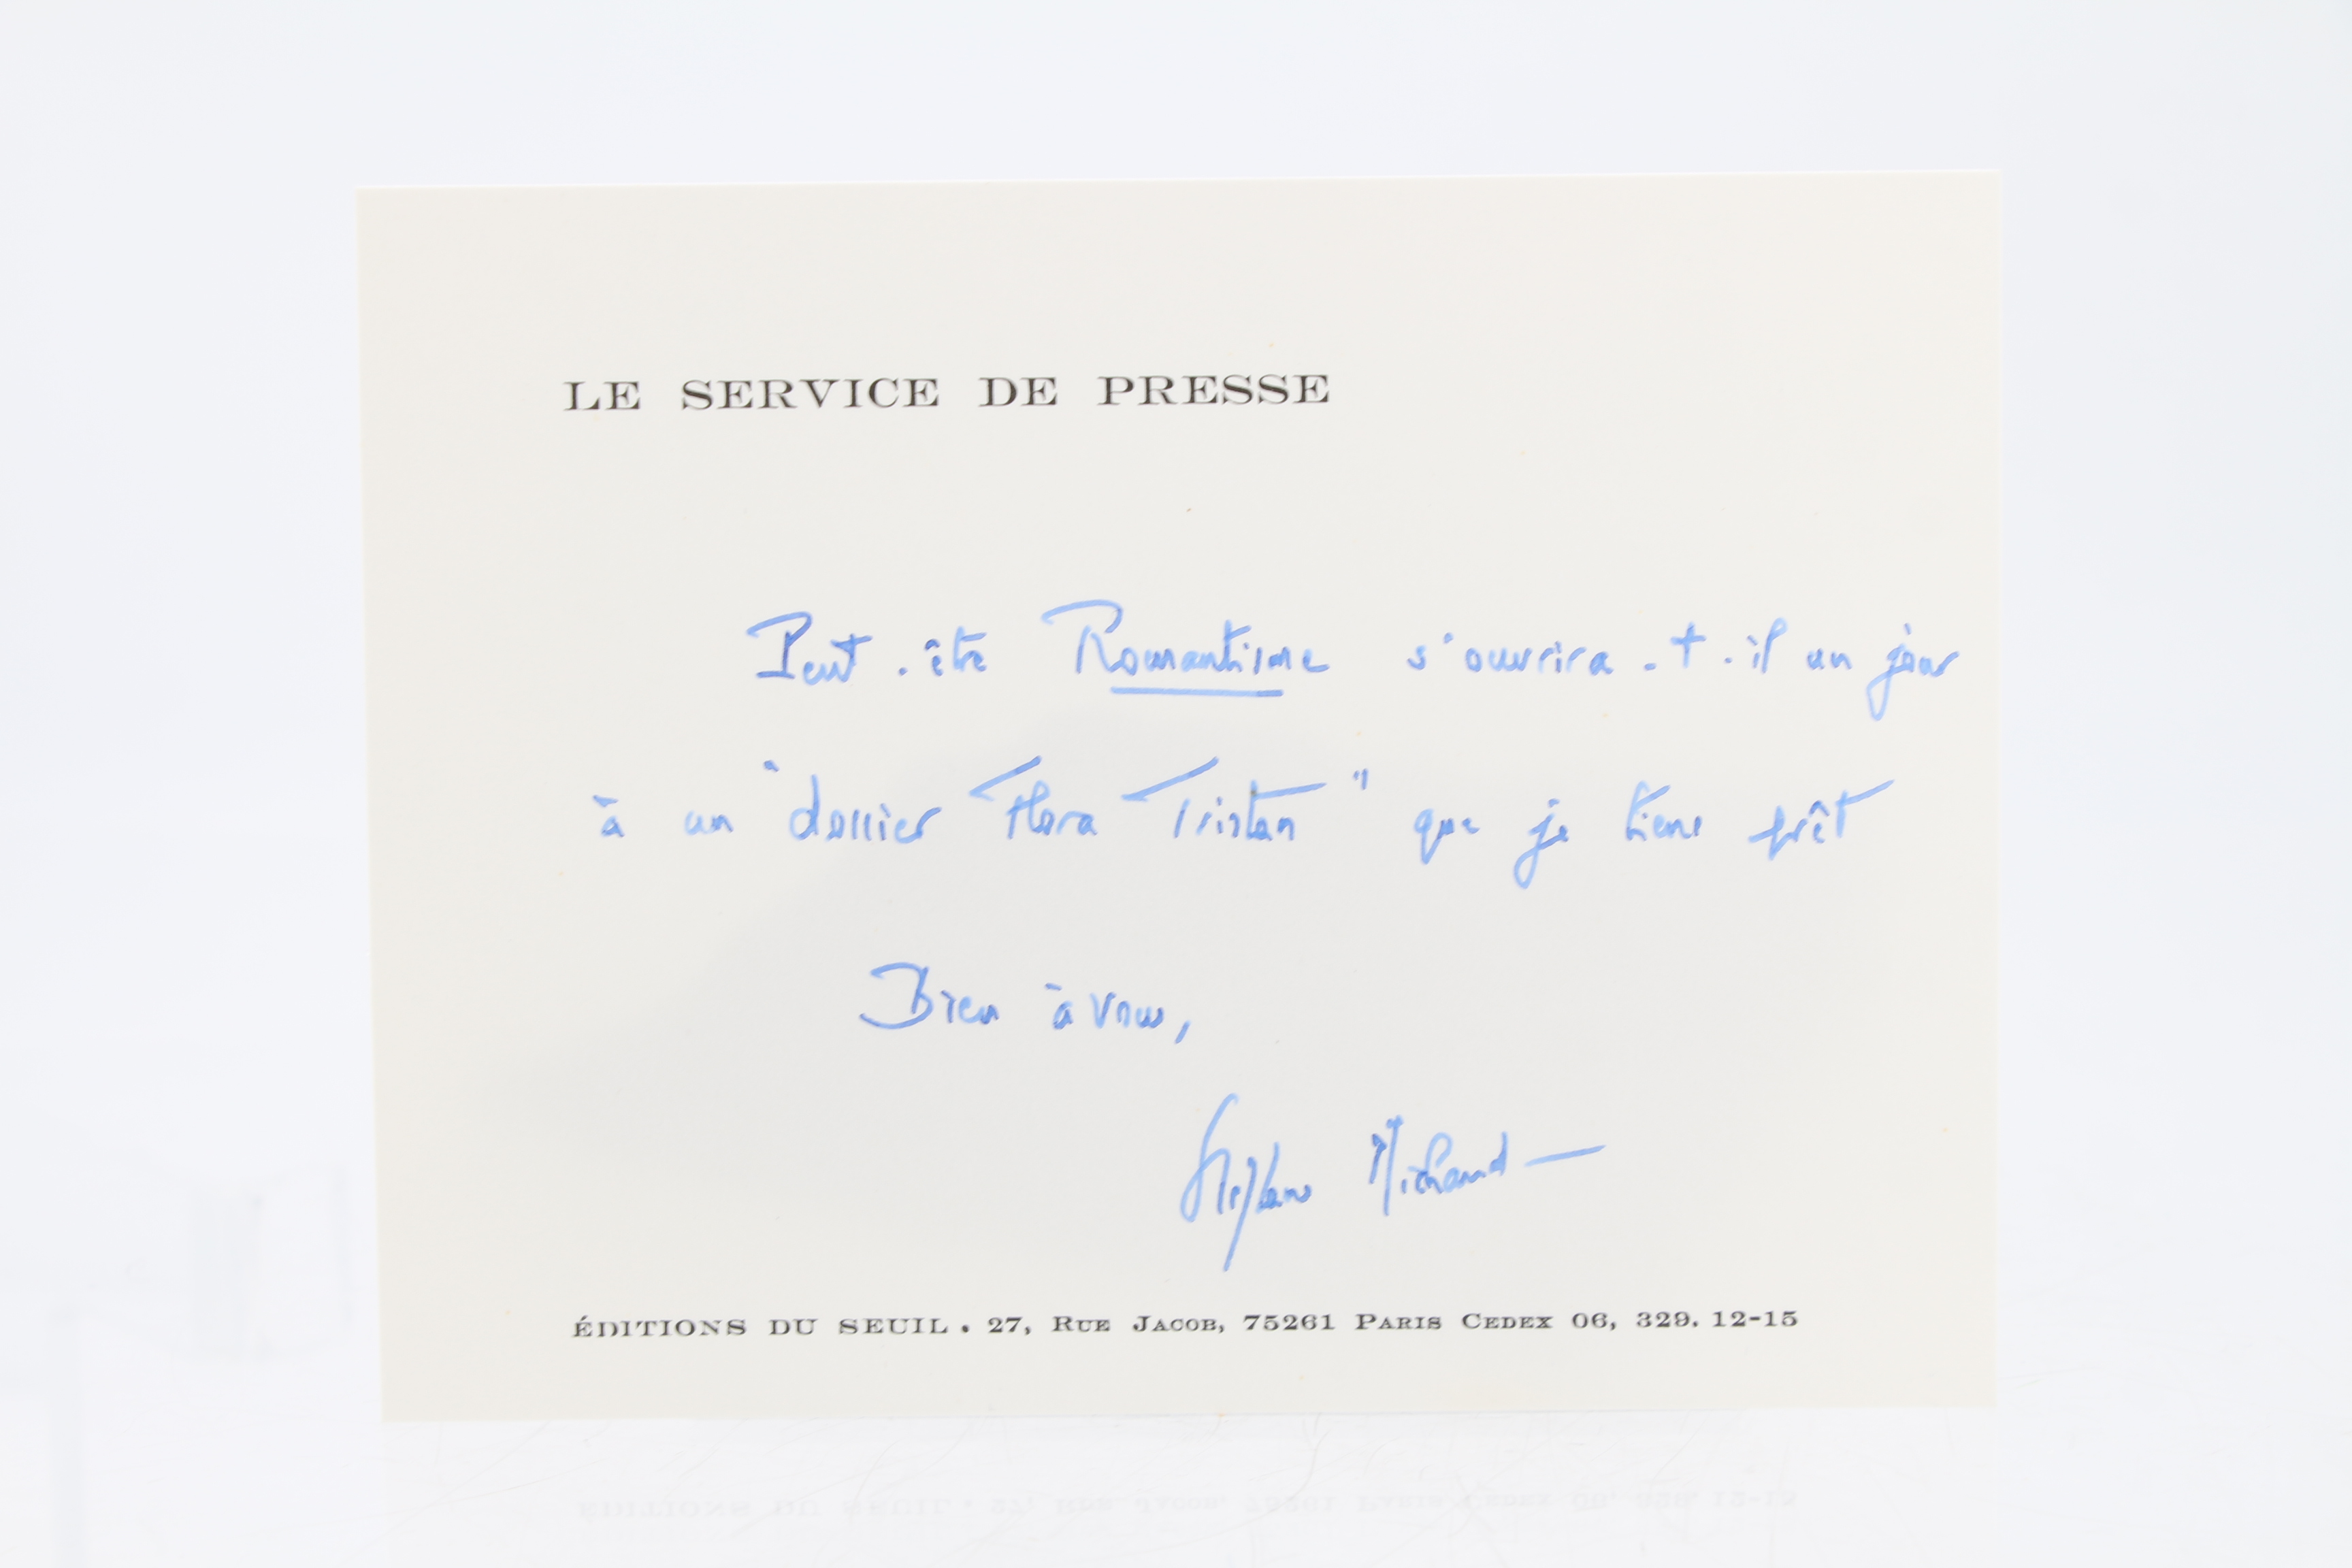 LE SERVICE DE PRESSE
Peut-être Romantisme s'ouvrira-t-il un jour
à un "dossier Flora Tristan" que je tiens prêt
Bien à vous,
Stéphane Michaud
ÉDITIONS DU SEUIL . 27, RUE JACOB, 75261 PARIS CEDEX 06, 329. 12-15